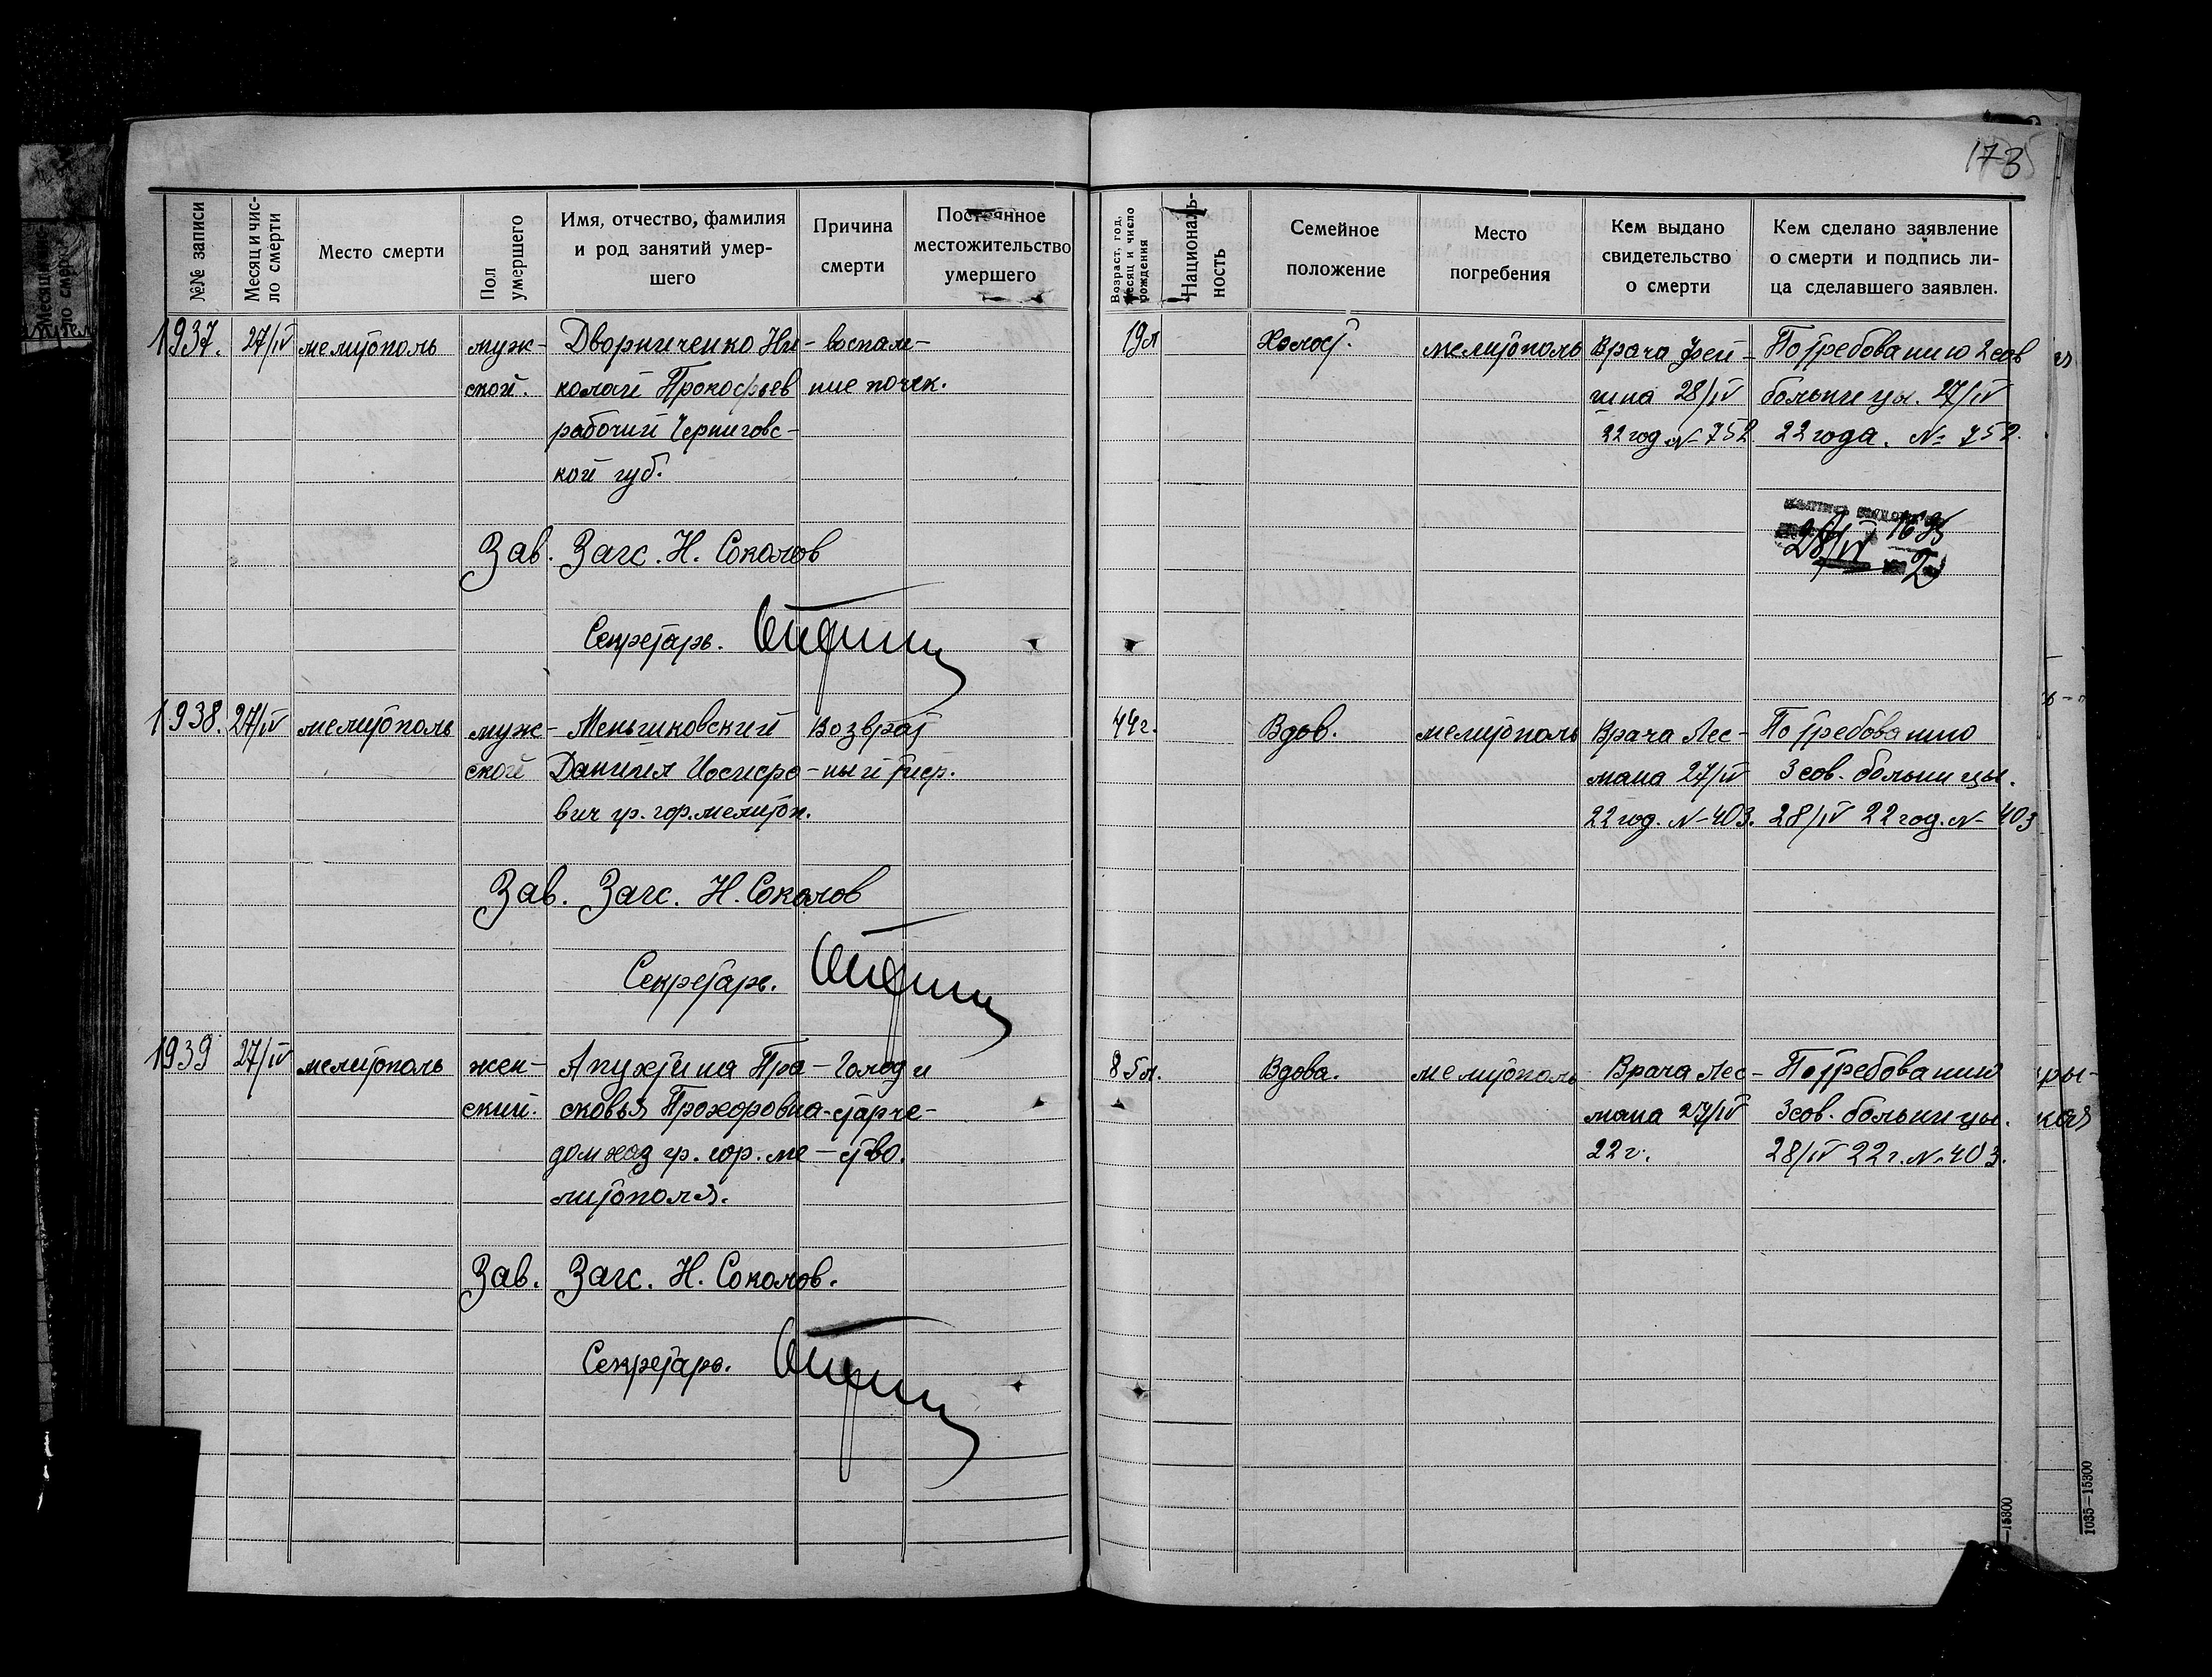 173
№№ записи
Месяц и чис-
ло смерти
Место смерти
Пол
умершего
Имя, отчество, фамилия
и род занятий умер-
шего
Причина
смерти
Постоянное
местожительство
умершего
Возраст, год,
месяц и число
рождения
Националь-
ность
Семейное
положение
Место
погребения
Кем выдано
свидетельство
о смерти
Кем сделано заявление
о смерти и подпись ли-
ца сделавшего заявлен.
1937. 27/IV мелитополь муж- Дворниченко Ни- воспале- 19л Холост. мелитополь Врача Фей- По требованию 2 сов
ской. колай Прокофьев ние почек. гина 28/IV больницы. 27/IV
рабочий Черниговс- 22 год № 752 22 года. № 752.
кой губ.
28/IV
Зав. Загс. Н. Соколов
Секретарь.
1938. 27/IV мелитополь муж- Меньшиковский Возврат 44г. Вдов. мелитополь Врача Лес- По требованию
ской Даниил Иосифо- ный тиф. мана 27/IV 3 сов. больницы.
вич гр. гор. мелитоп. 22 год. № 403. 28/IV 22 год. № 403
Зав. Загс. Н. Соколов
Секретарь.
1939 27/IV мелитополь жен- Апухтина Пра- Голод и 85л. Вдова. мелитополь Врача Лес- По требованию
ский. сковья Прохоровна старче- мана 27/IV 3 сов. больницы.
домхоз гр. гор. ме- ство. 22 г. 28/IV 22 г. № 403.
литополя.
Зав. Загс. Н. Соколов.
Секретарь.
—15300
1035—15300